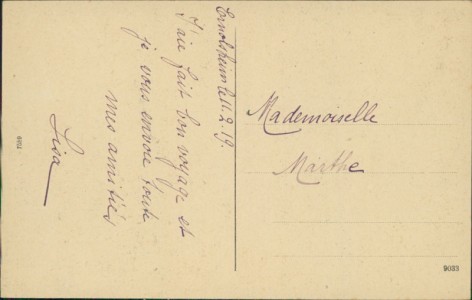 Ernolsheim le 11.2.19.
J'ai fait bon voyage et
je vous envoie toute
mes amitiés
Lisa
Mademoiselle
Marthe
9033